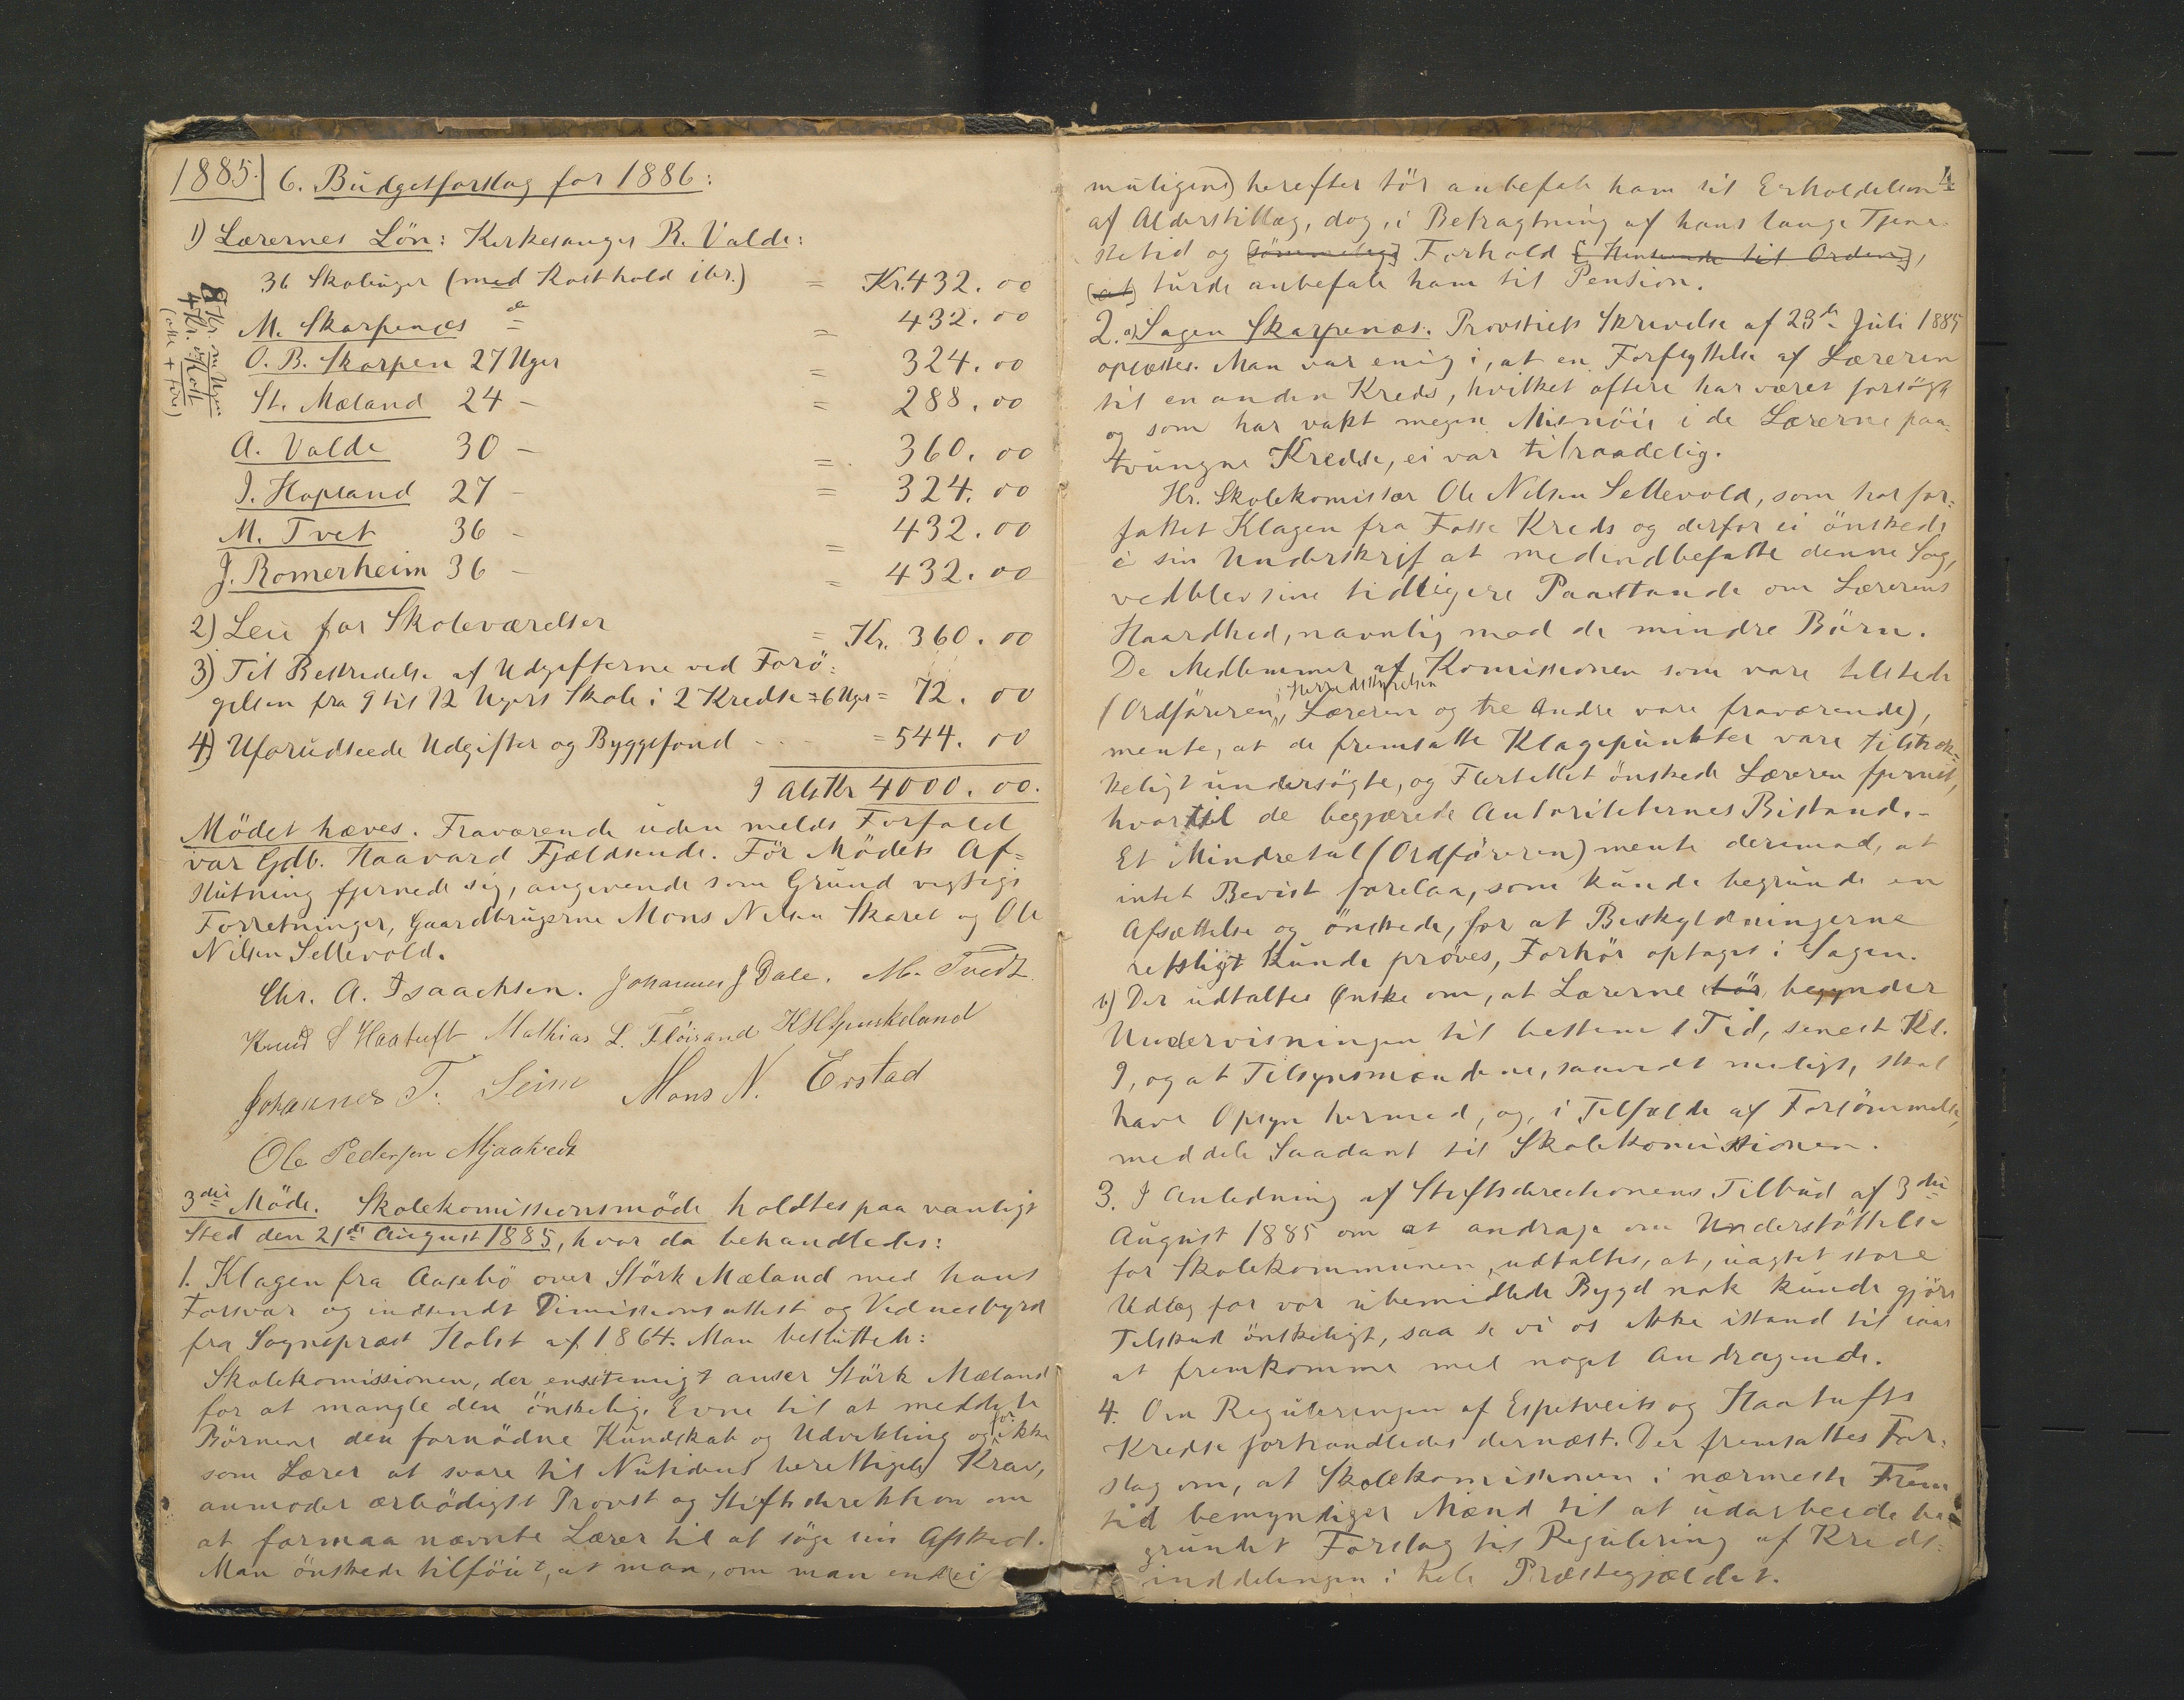 1885. 6. Budgetforslag for 1886:
1) Lærernes Lön: Kirkesanger R. Valde:
36 Skoleuger (med Kosthold iber.) = Kr. 432.00
M. Skarpenæs = 432.00
O. B. Skarpen 27 Uger = 324.00
St. Mæland 24 - = 288.00
A. Valde 30 - = 360.00
I. Hopland 27 - = 324.00
M. Tvet 36 - = 432.00
J. Romerheim 36 - = 432.00
8 Kr. om Ugen
4 Kr. Kost
2) Leie for Skoleværelser = Kr. 360.00
3) Til Bestridelse af Udgifterne ved Forö-
gelsen fra 9 til 12 Ugers Skole i 2 Kredse = 6 Uger = 72.00
4) Uforudseede Udgifter og Byggefond - - - = 544.00
I Alt Kr 4000.00.
Mödet hæves. Fraværende uden meldt Forfald
var Gdb. Haavard Fjeldsende. För Mödets Af=
slutning fjernede sig, angivende som Grund vigtige
Forretninger, Gaardbrugerne Mons Nilsen Skaret og Ole
Nilsen Sellevold.
Chr. A. Isaachsen. Johannes J Dale. M. Tvedt
Knud S Haatuft Mathias L. Flöisand
Johannes T. Seim Mons N. Erstad
Ole Pedersen Mjaatvedt
3die Möde. Skolekomissionsmöde holdtes paa vanligt
Sted den 21de August 1885, hvor da behandledes:
1. Klagen fra Aasebö over Störk Mæland med hans
Forsvar og indsendt Dimissionsattest og Vidnesbyrd
fra Sognepræst Holst af 1864. Man besluttede:
Skolekomissionen, der enstemigt anser Störk Mæland
for at mangle den önskelige Evne til at meddele
Börnene den fornödne Kundskab og Udvikling og for ikke
som Lærer at svare til Nutidens berettigede Krav,
anmoder ærbödigst Provst og Stiftsdirektion om
at formaa nævnte Lærer til at söge sin Afsked.
Man önskede tilföiet, at man, om man end (ei
4
muligens) herefter tör anbefale ham til Erholdelsen
af Alderstillæg, dog, i Betragtning af hans lange Tjene-
stetid og [sömmelige] Forhold [i Henseende til Orden],
(at) turde anbefale ham til Pension.
2. a) Sagen Skarpenæs. Provstiets Skrivelse af 28de Juli 1885
oplæstes. Man var enig i, at en Forflyttelse af Læreren
til en anden Kreds, hvilket oftere har været forsögt
og som har vakt megen Misnöie i de Lærerne paa-
tvungne Kredse, ei var tilraadelig.
Hr. Skolekomissær Ole Nilsen Sellevold, som har for-
fattet Klagen fra Fosse Kreds og derfor ei önskede
i sin Underskrif at medindbefatte denne Sag,
vedblev sine tidligere Paastande om Lærerens
Haardhed, navnlig mod de mindre Börn.
De Medlemmer af Komissionen som vare tilstede
(Ordföreren i Herredstyrelsen, Læreren og tre Andre vare fraværende),
mente, at de fremsatte Klagepunkter vare tilstræk-
keligt undersögte, og Flertallet önskede Læreren fjernet,
hvortil de begjærede Autoriteternes Bistand. -
Et Mindretal (Ordföreren) mente derimod, at
intet Bevist forelaa, som kunde begrunde en
Afsættelse og önskede, for at Beskyldningerne
retsligt kunde pröves, Forhör optaget i Sagen.
b) Der udtaltes Önske om, at Lærerne tör begynder
Undervisningen til bestemt Tid, senest Kl.
9, og at Tilsynsmændene, saavidt muligt, skal
have Opsyn hermed, og, i Tilfælde af Forsömmelse,
meddele Saadant til Skolekomissionen.
3. I Anledning af Stiftsdirectionens Tilbud af 3die
August 1885 om at andrage om Understöttelse
for Skolekommunen, udtaltes, at, uagtet store
Udlæg for vor ubemidlede Bygd nok kunde gjöre
Tilskud önskeligt, saa se vi os ikke istand til iaar
at fremkomme med noget Andragende.
4. Om Reguleringen af Espetveits og Haatufts
Kredse forhandledes dernæst. Der fremsattes For-
slag om, at Skolekomissionen i nærmeste Frem
tid bemyndiger Mænd til at udarbeide be-
grundet Forslag til Regulering af Kreds-
inddelingen i hele Præstegjældet.